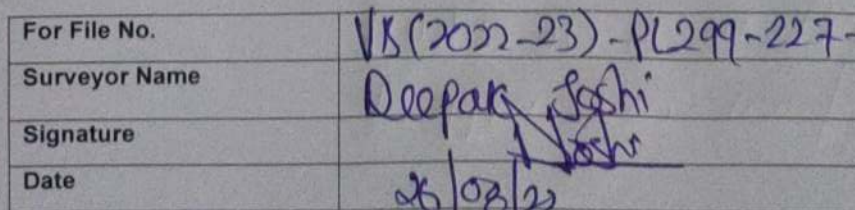 For File No. VIS(2022-23)-PL299-227-
Surveyor Name Deepak Joshi
Signature Joshi
Date 26/08/22